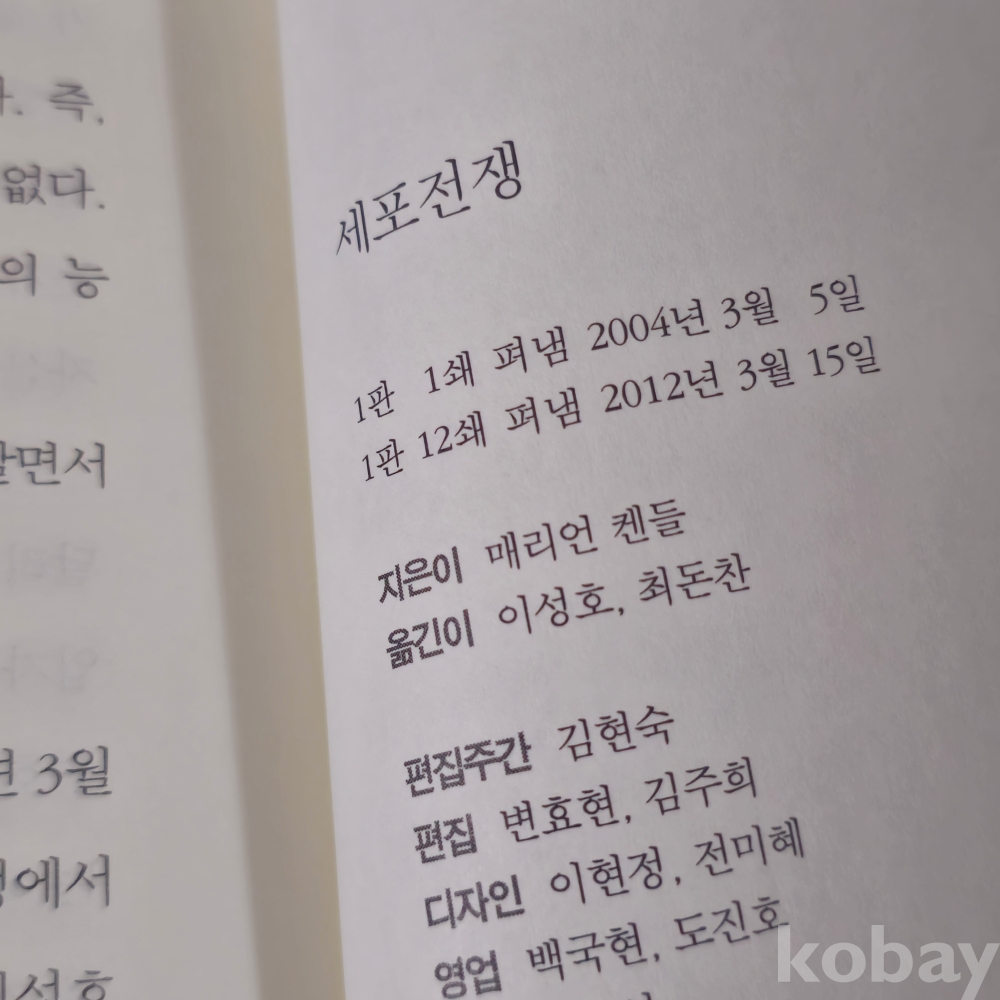 즉,
없다.
의 능
면서
3월
에서
세포전쟁
1판 1쇄 펴냄 2004년 3월 5일
1판 12쇄 펴냄 2012년 3월 15일
지은이 매리언 켄들
옮긴이 이성호, 최돈찬
편집주간 김현숙
편집 변효현, 김주희
디자인 이현정, 전미혜
영업 백국현, 도진호
kobay